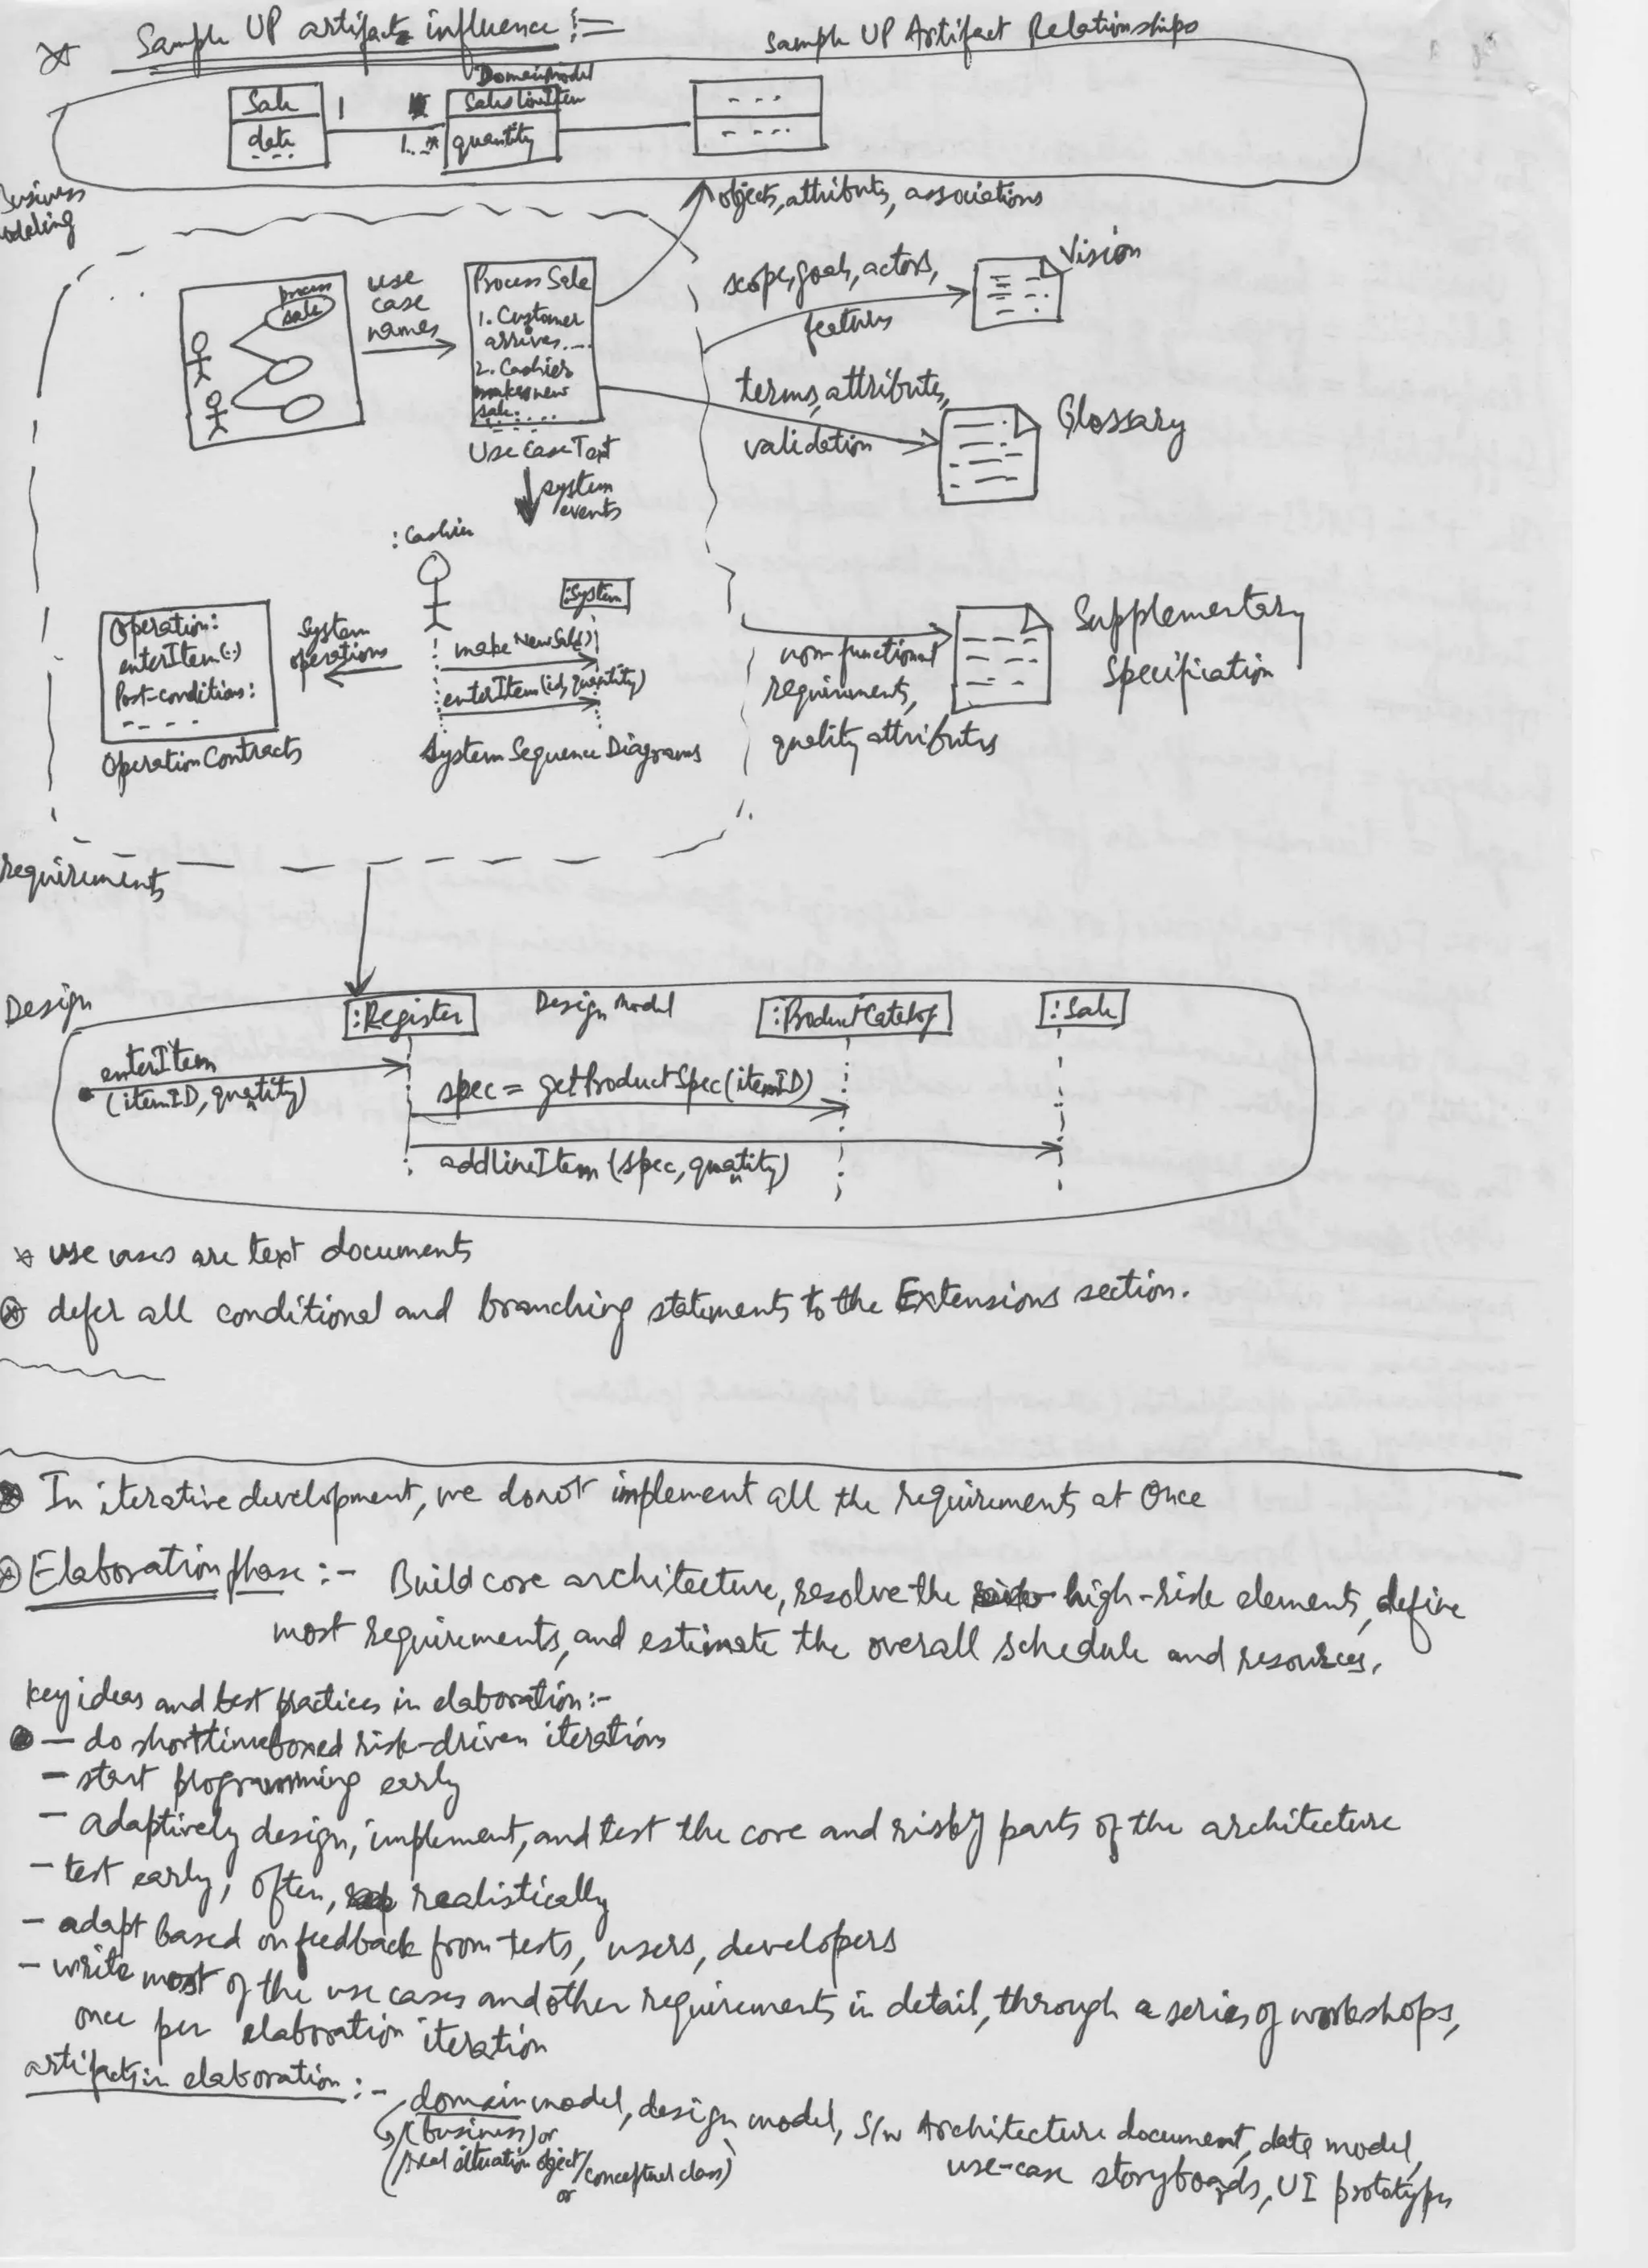 Sample UP artifacts influence :-
Sample UP Artifact Relationships
Domain Model
Sale
date
1
1..*
SalesLineItem
quantity
Business
Modeling
objects, attributes, associations
process
sale
use
case
names
Process Sale
1. Customer
arrives...
2. Cashier
makes new
sale.
Use Case Text
scope, goals, actors,
features
Vision
terms, attributes,
validation
Glossary
system
events
: Cashier
:System
make NewSale()
enterItem(id, quantity)
System Sequence Diagrams
System
operations
Operation:
enterItem(..)
Post-conditions:
Operation Contracts
non-functional
requirements,
quality attributes
Supplementary
Specification
requirements
Design
:Register
Design Model
:ProductCatalog
:Sale
enterItem
(itemID, quantity)
spec = getProductSpec(itemID)
addLineItem (spec, quantity)
* use cases are text documents
* defer all conditional and branching statements to the Extensions section.
* In iterative development, we donot implement all the requirements at Once
* Elaboration phase :- Build core architecture, resolve the high-risk elements, define
most requirements, and estimate the overall schedule and resources.
key ideas and best practices in elaboration:-
- do short timeboxed risk-driven iterations
- start programming early
- adaptively design, implement, and test the core and risky parts of the architecture
- test early, often, realistically
- adapt based on feedback from tests, users, developers
- write most of the use cases and other requirements in detail, through a series of workshops,
once per elaboration iteration
artifacts in elaboration :- domain model, design model, S/w Architecture document, data model,
(business) or
(real situation object/conceptual class)
or
use-case storyboards, UI prototypes